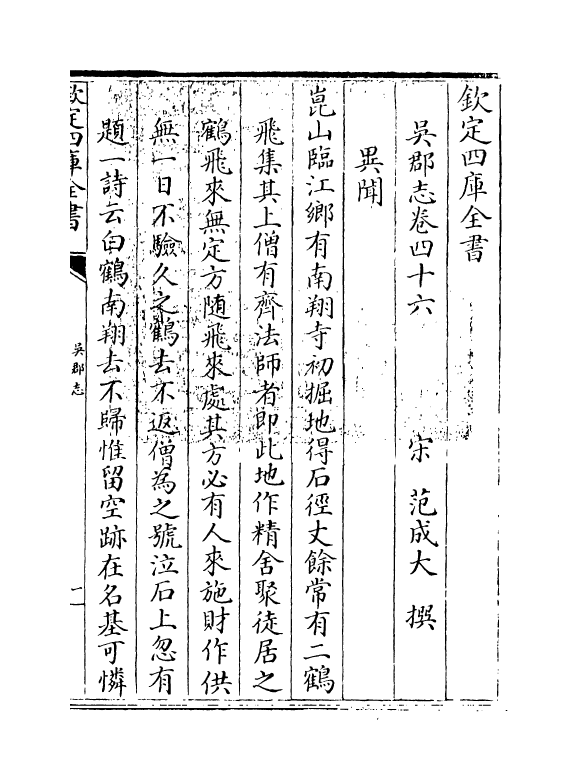 欽定四庫全書
吳郡志卷四十六　宋　范成大　撰
異聞
崑山臨江鄉有南翔寺初掘地得石徑丈餘常有二鶴
飛集其上僧有齊法師者即此地作精舍聚徒居之
鶴飛來無定方随飛來處其方必有人來施財作供
無一日不驗久之鶴去不返僧為之號泣石上忽有
題一詩云白鶴南翔去不歸惟留空跡在名基可憐
欽定四庫全書
吳郡志